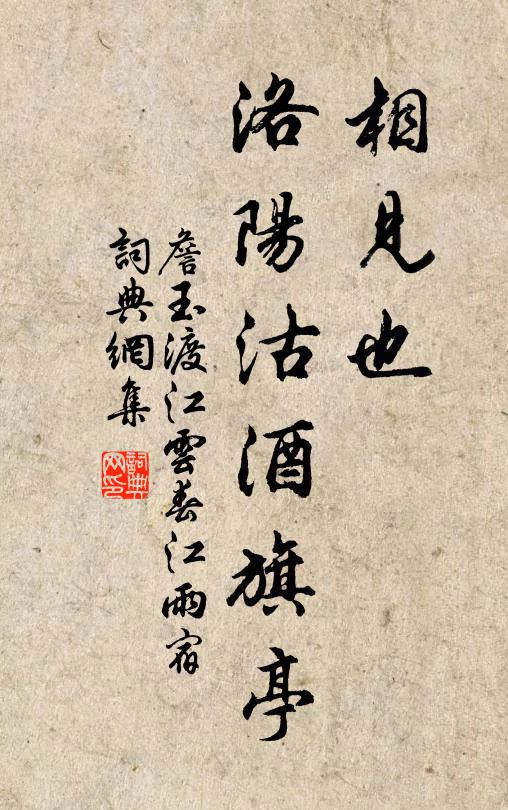 相見也
洛陽沽酒旗亭
詹玉渡江雲春江雨宿
詞典網集
詞典網印